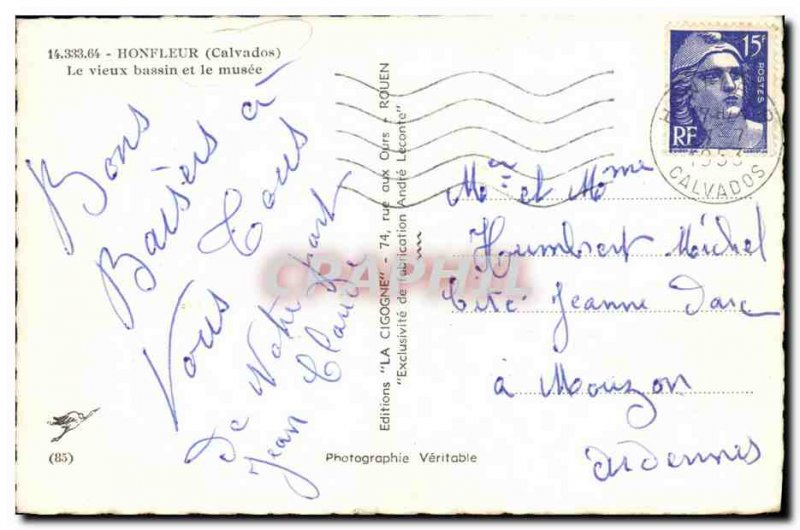 14.333.64 - HONFLEUR (Calvados)
Le vieux bassin et le musée
Bons
Baisers à
Vous Tous
De Notre part
Jean Claude
(85)
Photographie Véritable
Editions "LA CIGOGNE" - 74, rue aux Ours - ROUEN
"Exclusivité de fabrication André Leconte"
CPAPHIL
15F
POSTES
RF
1953
CALVADOS
Mr et Mme
Houmbert Michel
Cité Jeanne Darc
à Mouzon
Ardennes